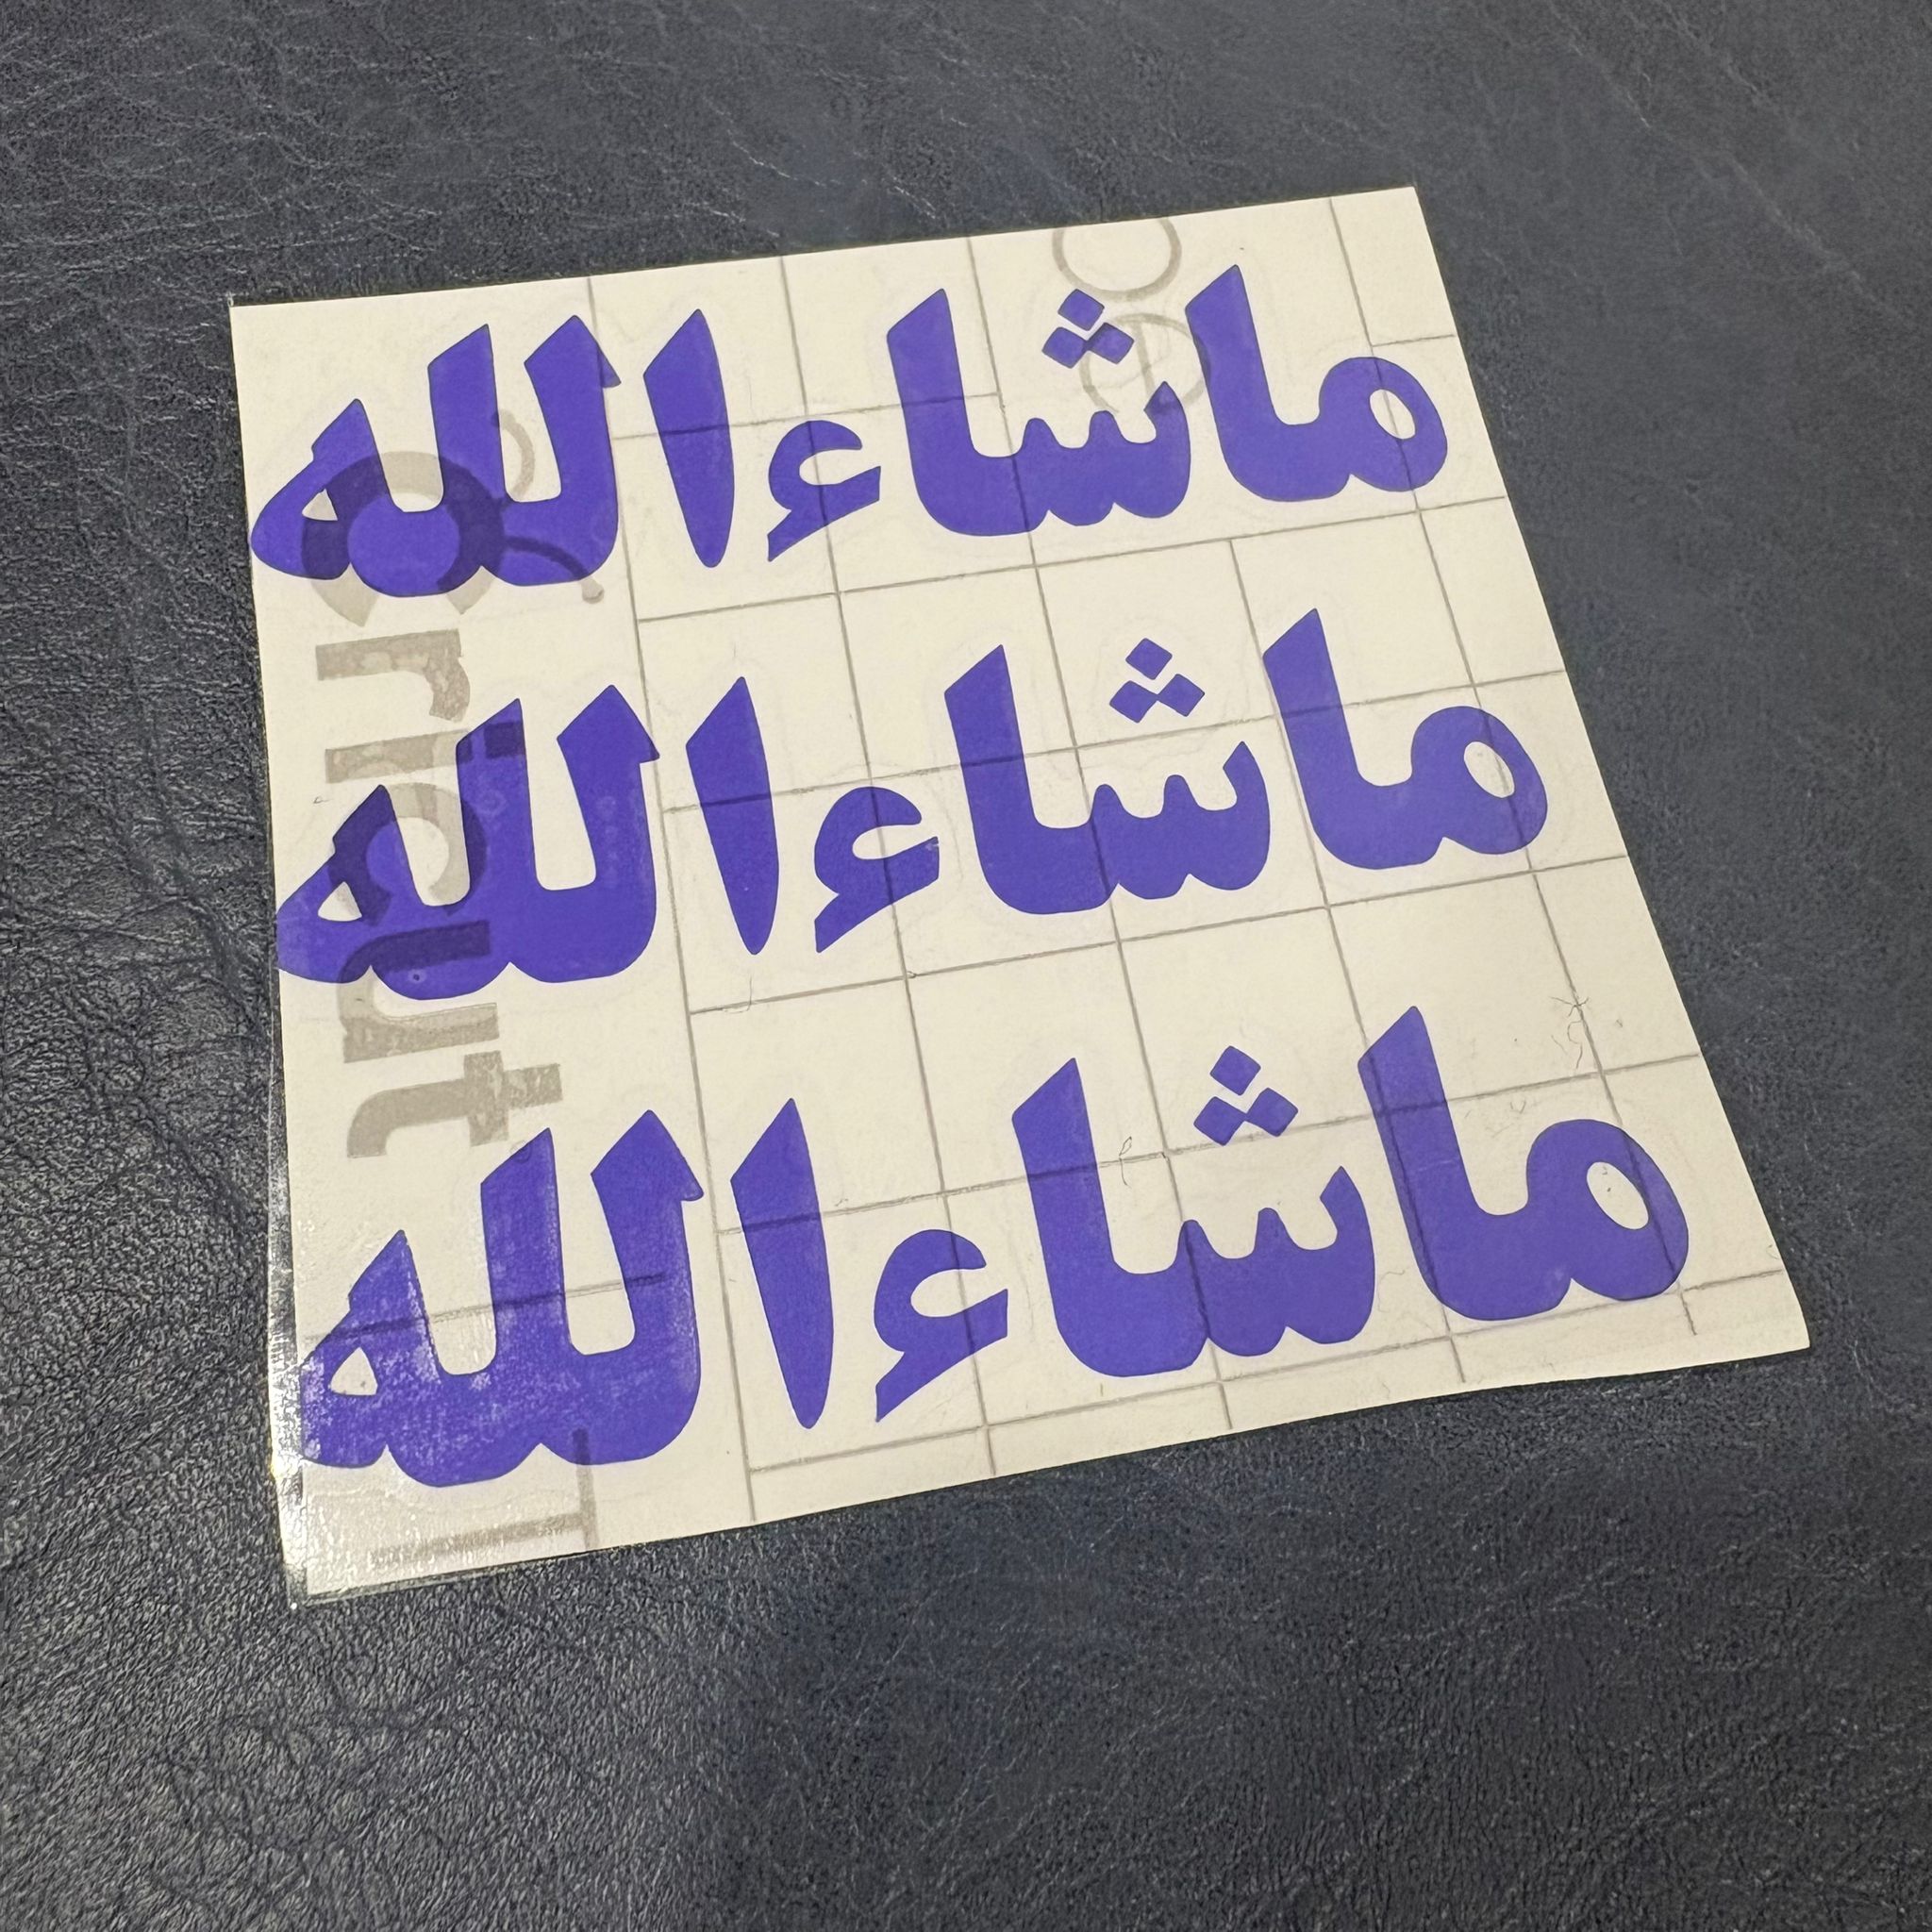 ماشاء الله
ماشاء الله
ماشاء الله
cricut